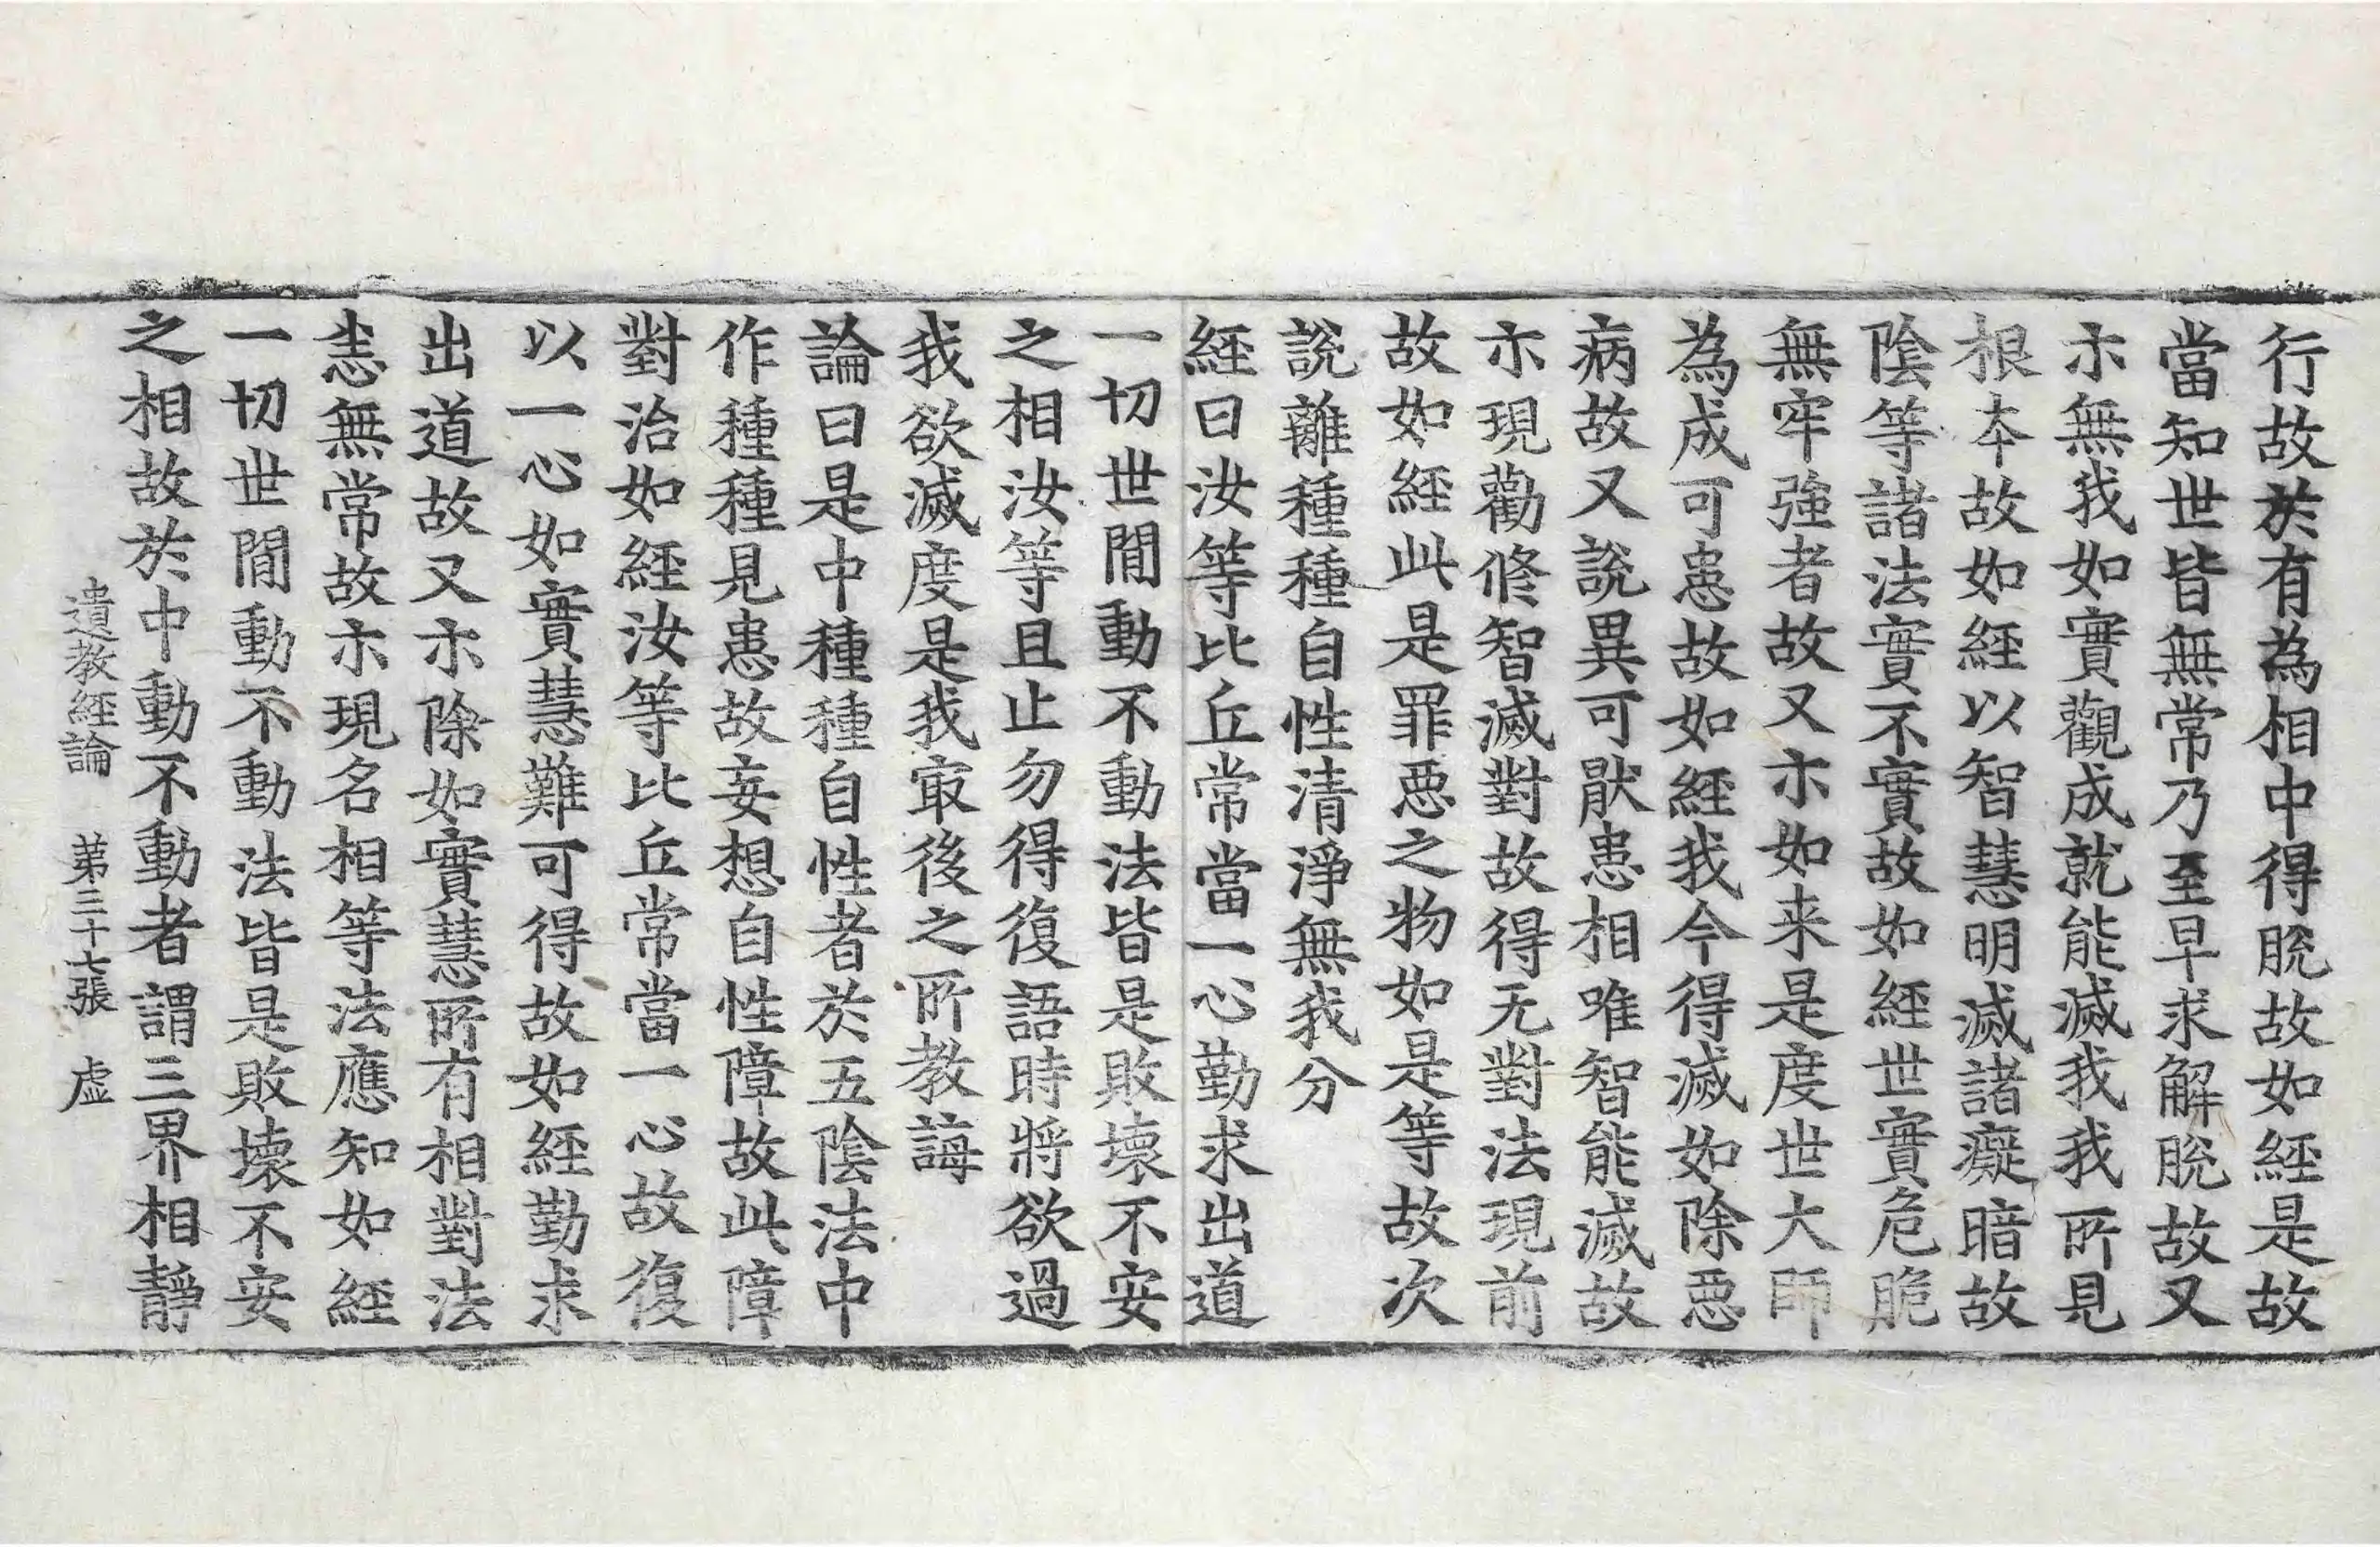 行故於有為相中得脫故如經是故
當知世皆無常乃至早求解脫故又
示無我如實觀成就能滅我我所見
根本故如經以智慧明滅諸癡暗故
陰等諸法實不實故如經世實危脆
無牢強者故又示如来是度世大師
為成可患故如經我今得滅如除惡
病故又說異可猒患相唯智能滅故
示現勸修智滅對故得无對法現前
故如經此是罪惡之物如是等故次
說離種種自性清淨無我分
經曰汝等比丘常當一心勤求出道
一切世間動不動法皆是敗壞不安
之相汝等且止勿得復語時將欲過
我欲滅度是我㝡後之所教誨
論曰是中種種自性者於五陰法中
作種種見患故妄想自性障故此障
對治如經汝等比丘常當一心故復
以一心如實慧難可得故如經勤求
出道故又示除如實慧所有相對法
恚無常故示現名相等法應知如經
一切世間動不動法皆是敗壞不安
之相故於中動不動者謂三界相靜
遺教經論 第三十七張 虛